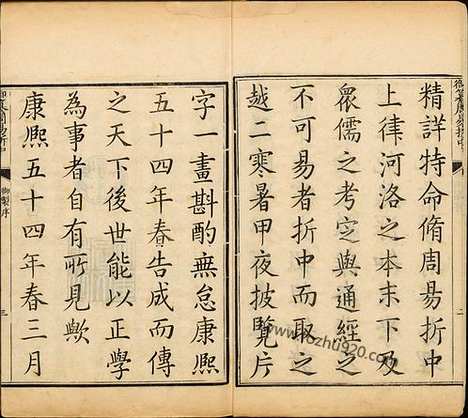 御纂周易折中
精詳特命脩周易折中
上律河洛之本末下及
衆儒之考定與通經之
不可易者折中而取之
越二寒暑甲夜披覽片
二
字一畫斟酌無怠康熙
五十四年春告成而傳
之天下後世能以正學
為事者自有所見歟
康熙五十四年春三月
御纂周易折中
御製序
三